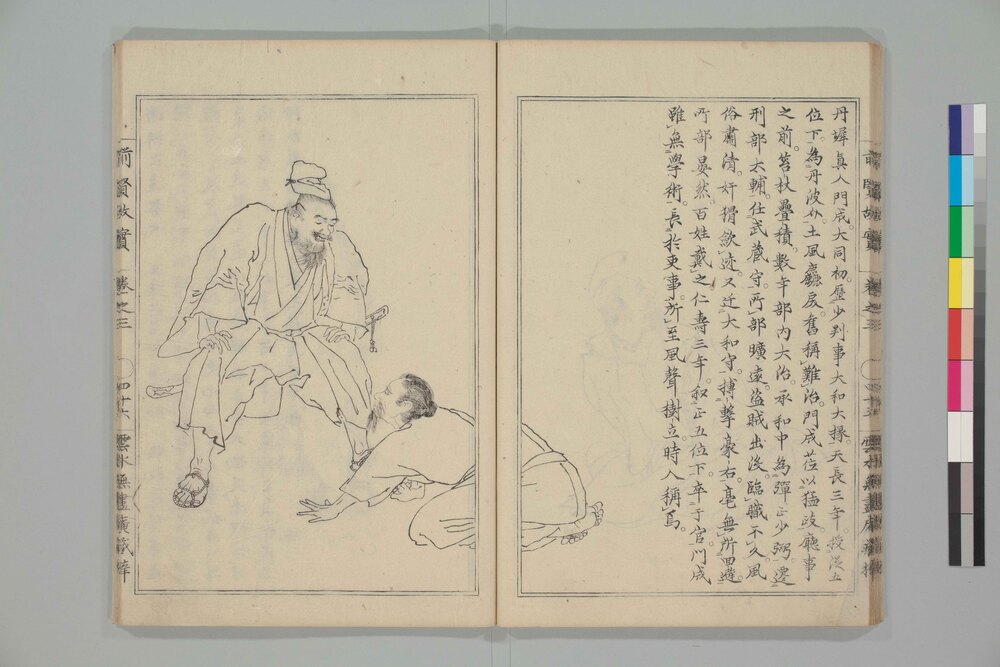 丹墀真人門成。大同初歴少判事大和大掾。天長三年。授従五
位下。為丹波介。土風麤戻。舊稱難治。門成莅以猛政。廳事
之前。笞杖疊積。數年部内大治。承和中為彈正少弼。遷
刑部大輔。仕武蔵守。所部曠遠。盗賊出没。臨職不久。風
俗肅清。奸猾斂迹。又迁大和守。搏撃豪右。毫無所囬避。
所部晏然。百姓戴之。仁壽三年。叙正五位下。卒于官。門成
雖無學術。長於吏事。所至風聲樹立。時人稱焉。
前賢故實
巻之三
前賢故實
巻之三
四十六